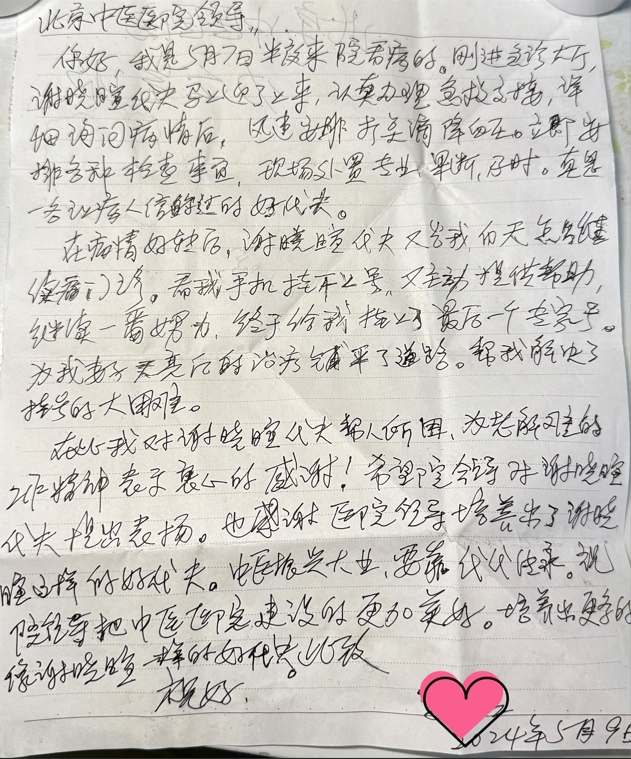 北京中医医院领导,
你好,我是5月7日半夜来院看病的。刚进急诊大厅,
谢晓暄代夫马上迎了上来,认真办理急救交接,详
细询问病情后,迅速安排打点滴降血压。立即安
排各种检查事宜,现场处置专业果断,及时。真是
一名让病人信的过的好代夫。
在病情好转后,谢晓暄代夫又告我白天怎么继
续看门诊。看我手机挂不上号,又主动提供帮助,
继续一番努力,终于给我挂上了最后一个专家号。
为我妻子天亮后的治疗铺平了道路。帮我解决了
挂号的大困难。
在此我对谢晓暄代夫帮人所困,为老解难的
工作精神表示衷心的感谢!希望院领导对谢晓暄
代夫提出表扬。也感谢医院领导培养出了谢晓
暄这样的好代夫。中医振兴大业,要靠代代传承。祝
院领导把中医医院建设的更加美好。培养出更多的
像谢晓暄一样的好代夫。此致
祝好.
2024年5月9日